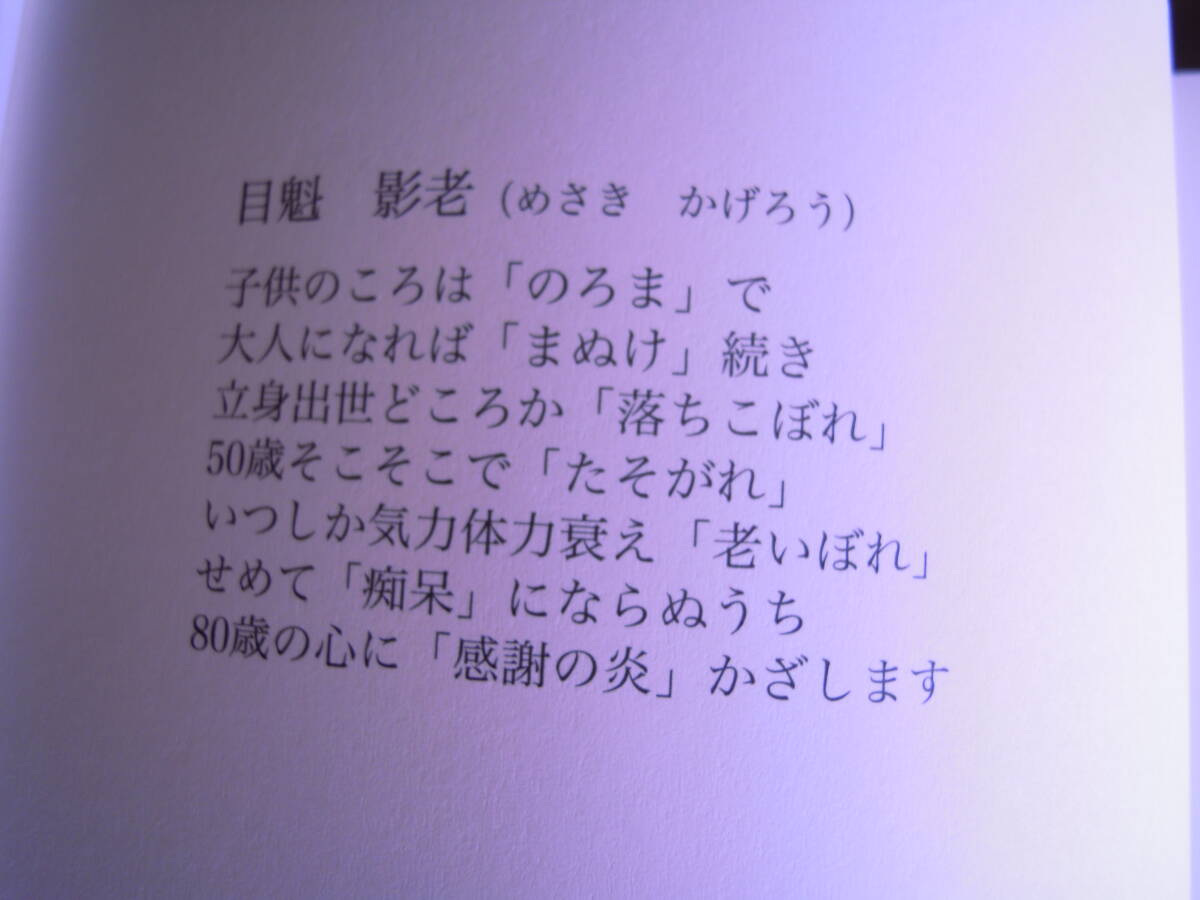 目魁　影老（めさき　かげろう）
子供のころは「のろま」で
大人になれば「まぬけ」続き
立身出世どころか「落ちこぼれ」
50歳そこそこで「たそがれ」
いつしか気力体力衰え「老いぼれ」
せめて「痴呆」にならぬうち
80歳の心に「感謝の炎」かざします